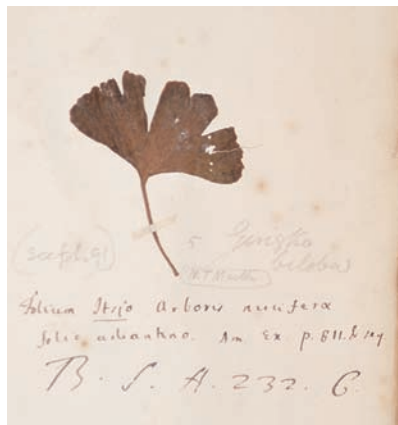 5 Gingko
biloba
Folium Itsjo Arboris nucifera
folio adiantino. Am Ex p. 811. &
B. S. H. 232. C.